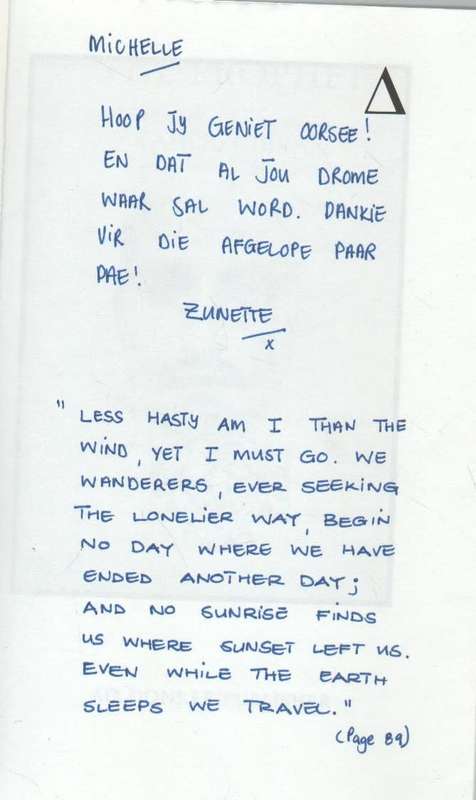 MICHELLE
HOOP JY GENIET OORSEE!
EN DAT AL JOU DROME
WAAR SAL WORD. DANKIE
VIR DIE AFGELOPE PAAR
DAE!
ZUNETTE
x
"LESS HASTY AM I THAN THE
WIND, YET I MUST GO. WE
WANDERERS, EVER SEEKING
THE LONELIER WAY, BEGIN
NO DAY WHERE WE HAVE
ENDED ANOTHER DAY;
AND NO SUNRISE FINDS
US WHERE SUNSET LEFT US.
EVEN WHILE THE EARTH
SLEEPS WE TRAVEL."
(Page 89)